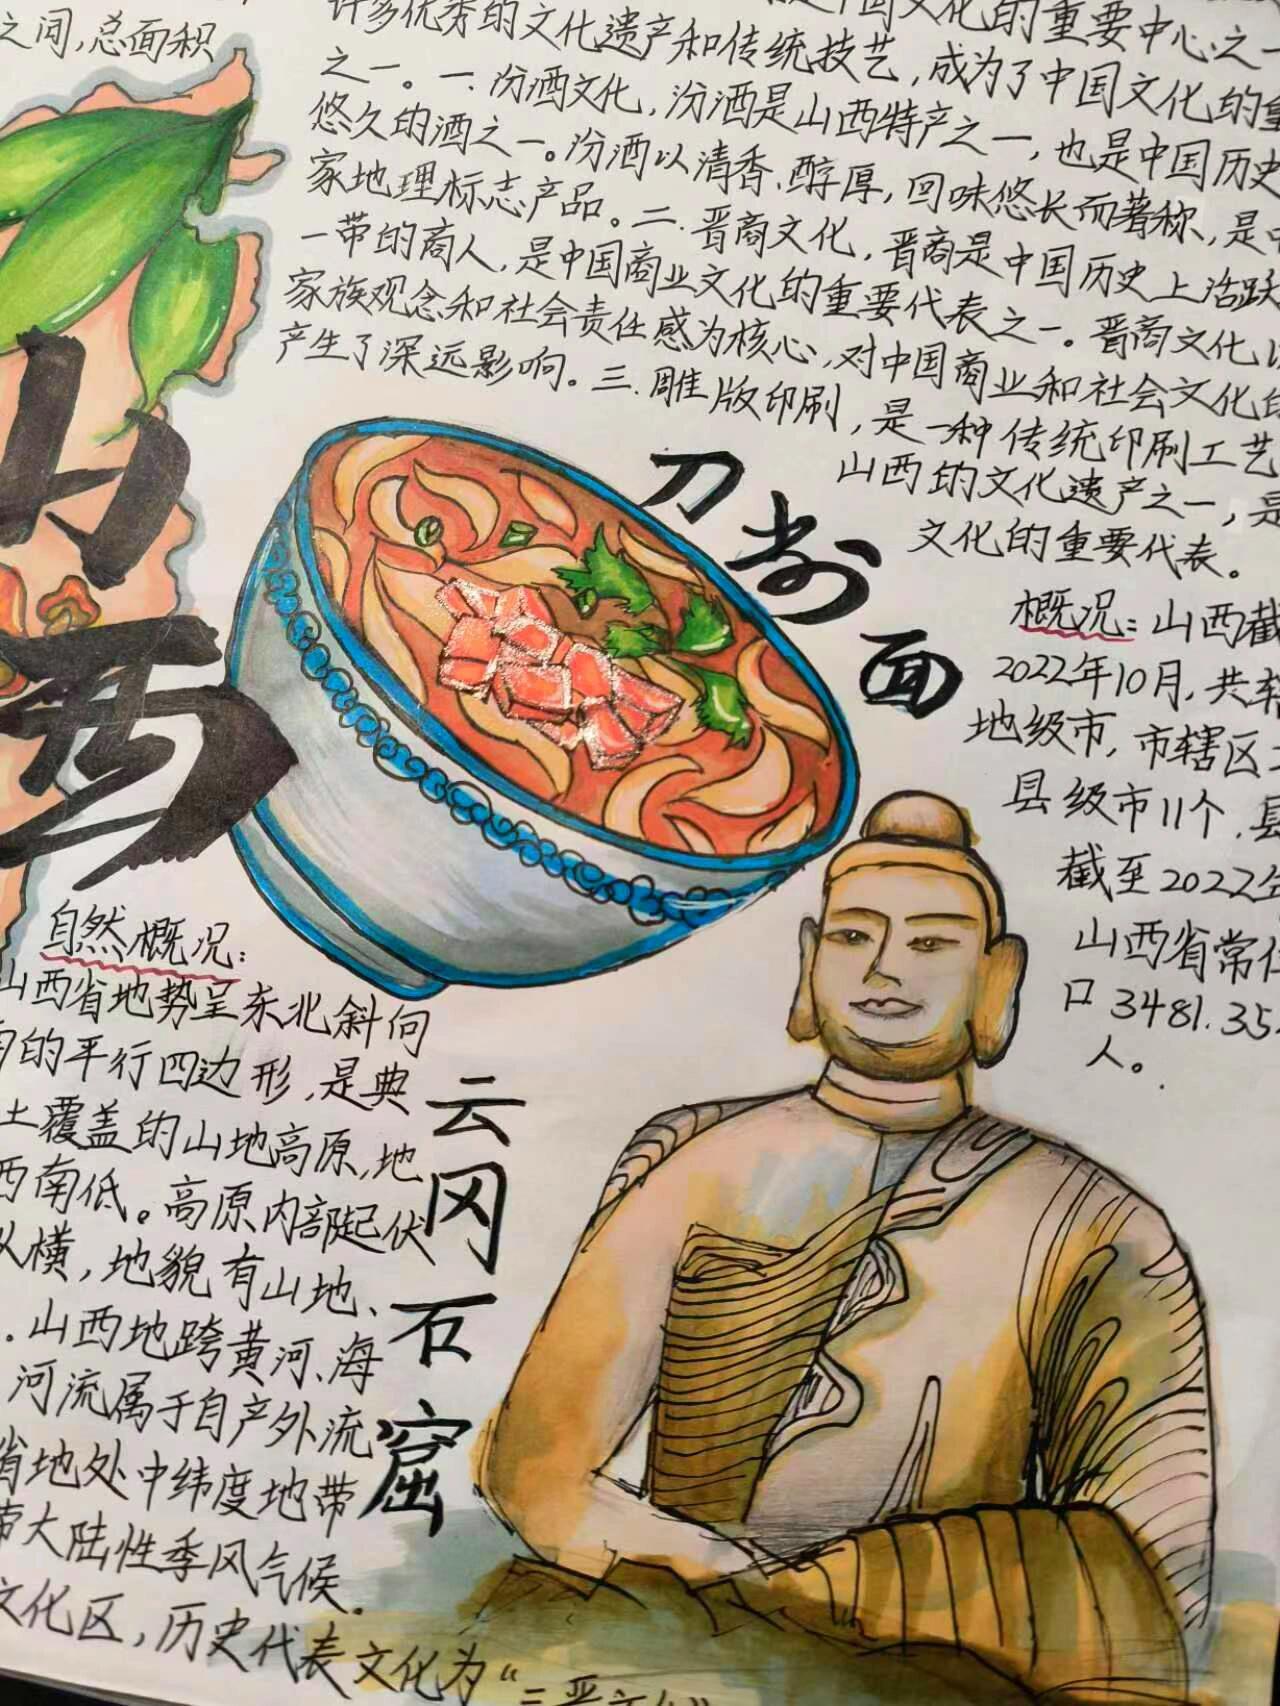 之间，总面积
许多优秀的文化遗产和传统技艺，成为了中国文化的重
中国文化的重要中心之一
之一。一.汾酒文化，汾酒是山西特产之一，也是中国历史
悠久的酒之一。汾酒以清香、醇厚，回味悠长而著称，是中
家地理标志产品。二.晋商文化，晋商是中国历史上活跃
一带的商人，是中国商业文化的重要代表之一。晋商文化以
家族观念和社会责任感为核心，对中国商业和社会文化的
产生了深远影响。三.雕版印刷，是一种传统印刷工艺
山西的文化遗产之一，是
文化的重要代表。
山西
刀削面
概况：山西截
2022年10月，共辖
地级市，市辖区
县级市11个，县
截至2022年
山西省常住
口3481.35
人。
自然概况：
山西省地势呈东北斜向
的平行四边形，是典
土覆盖的山地高原，地
西南低。高原内部起伏
纵横，地貌有山地、
．山西地跨黄河、海
河流属于自产外流
省地处中纬度地带
带大陆性季风气候．
文化区，历史代表文化为“三晋文化”
云冈石窟